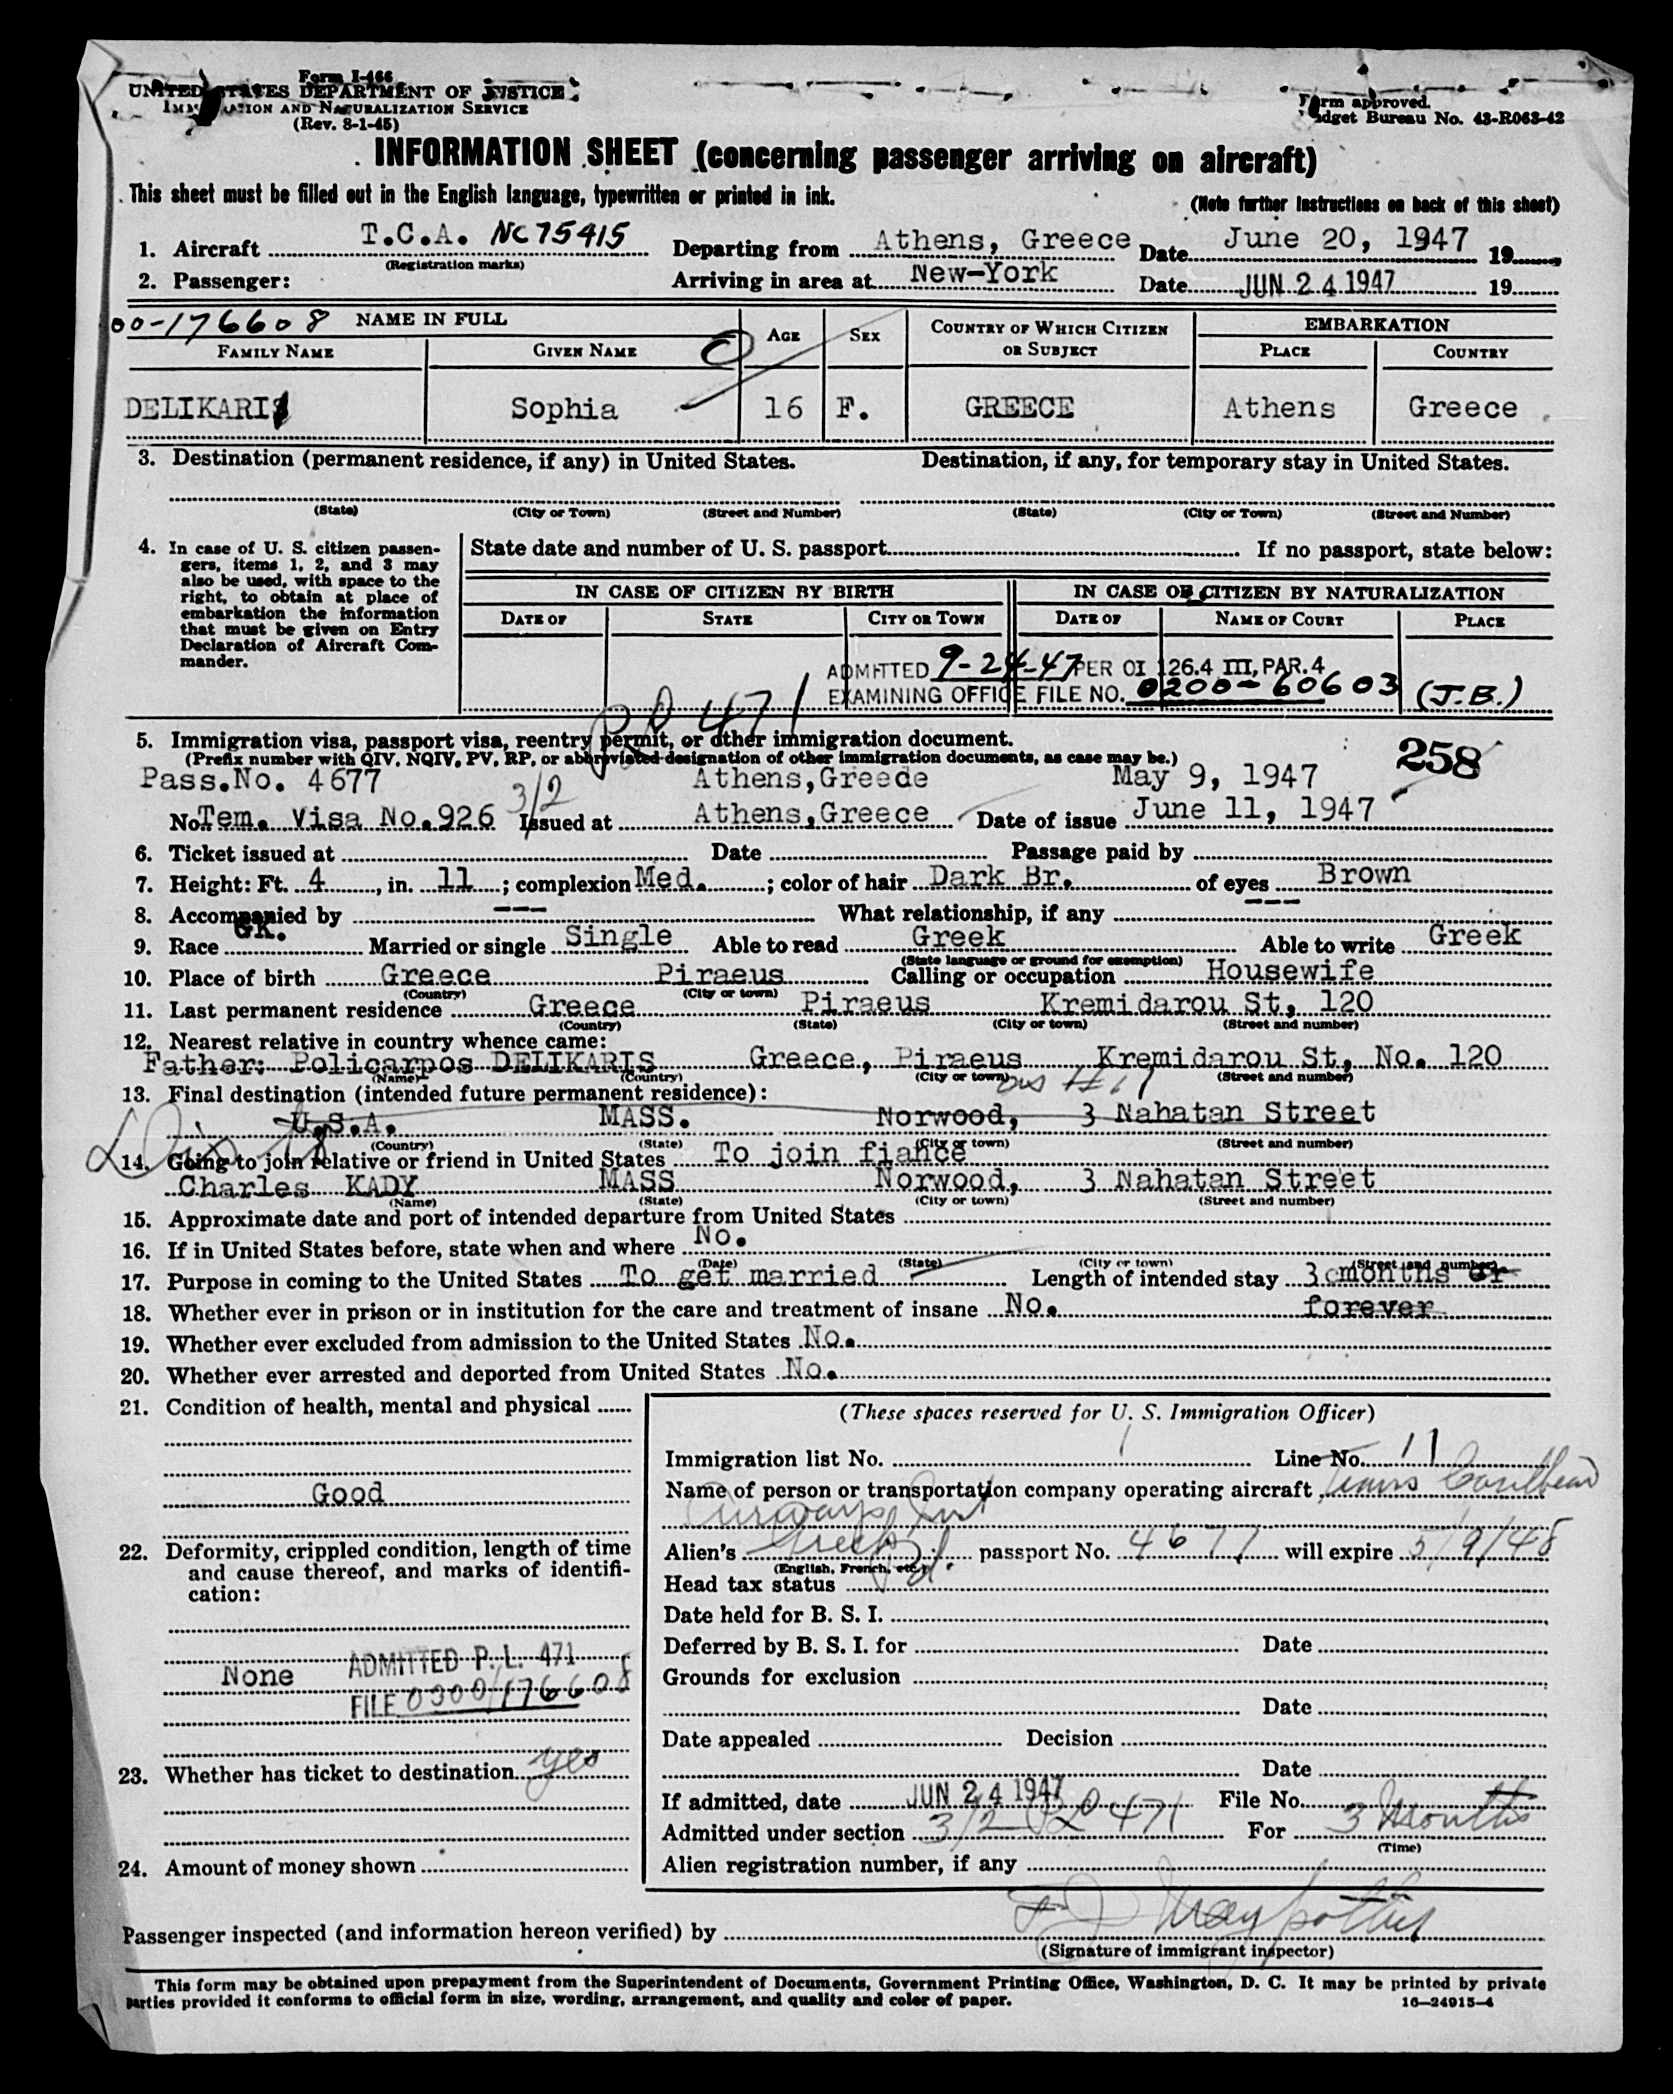 Form I-466
UNITED STATES DEPARTMENT OF JUSTICE
IMMIGRATION AND NATURALIZATION SERVICE
(Rev. 8-1-45)
Form approved.
Budget Bureau No. 43-R063-42
INFORMATION SHEET (concerning passenger arriving on aircraft)
This sheet must be filled out in the English language, typewritten or printed in ink.
(Note further instructions on back of this sheet)
1. Aircraft T.C.A. NC75415 Departing from Athens, Greece Date June 20, 1947 19
(Registration marks)
2. Passenger: Arriving in area at New-York Date JUN 24 1947 19
00-176608 NAME IN FULL AGE SEX COUNTRY OF WHICH CITIZEN OR SUBJECT EMBARKATION
FAMILY NAME GIVEN NAME PLACE COUNTRY
DELIKARIS Sophia 16 F. GREECE Athens Greece
3. Destination (permanent residence, if any) in United States. Destination, if any, for temporary stay in United States.
(State) (City or Town) (Street and Number) (State) (City or Town) (Street and Number)
4. In case of U. S. citizen passen-
gers, items 1, 2, and 3 may
also be used, with space to the
right, to obtain at place of
embarkation the information
that must be given on Entry
Declaration of Aircraft Com-
mander.
State date and number of U. S. passport If no passport, state below:
IN CASE OF CITIZEN BY BIRTH IN CASE OF CITIZEN BY NATURALIZATION
DATE OF STATE CITY OR TOWN DATE OF NAME OF COURT PLACE
ADMITTED 9-24-47 PER OI 126.4 III, PAR. 4
EXAMINING OFFICE FILE NO. 0200-60603 (J.B.)
PL 471
5. Immigration visa, passport visa, reentry permit, or other immigration document.
258
(Prefix number with QIV, NQIV, PV, RP, or abbreviated designation of other immigration documents, as case may be.)
Pass.No. 4677 Athens,Greece May 9, 1947
3/2
No. Tem. Visa No.926 Issued at Athens,Greece Date of issue June 11, 1947
6. Ticket issued at Date Passage paid by
7. Height: Ft. 4, in. 11; complexion Med.; color of hair Dark Br. of eyes Brown
8. Accompanied by --- What relationship, if any ---
9. Race GK. Married or single Single Able to read Greek Able to write Greek
(State language or ground for exemption)
10. Place of birth Greece Piraeus Calling or occupation Housewife
(Country) (City or town)
11. Last permanent residence Greece Piraeus Kremidarou St, 120
(Country) (State) (City or town) (Street and number)
12. Nearest relative in country whence came:
Father: Policarpos DELIKARIS Greece, Piraeus Kremidarou St, No. 120
(Name) (Country) (City or town) (Street and number)
13. Final destination (intended future permanent residence):
U.S.A. MASS. Norwood, 3 Nahatan Street
(Country) (State) (City or town) (Street and number)
14. Going to join relative or friend in United States To join fiance
Charles KADY MASS Norwood, 3 Nahatan Street
(Name) (State) (City or town) (Street and number)
15. Approximate date and port of intended departure from United States
16. If in United States before, state when and where No.
(Date) (State) (City or town) (Street and number)
17. Purpose in coming to the United States To get married Length of intended stay 3 months or
18. Whether ever in prison or in institution for the care and treatment of insane No. forever
19. Whether ever excluded from admission to the United States No.
20. Whether ever arrested and deported from United States No.
21. Condition of health, mental and physical
Good
22. Deformity, crippled condition, length of time
and cause thereof, and marks of identifi-
cation:
None ADMITTED P. L. 471
FILE 0300/176608
23. Whether has ticket to destination yes
24. Amount of money shown
(These spaces reserved for U. S. Immigration Officer)
Immigration list No. 1 Line No. 11
Name of person or transportation company operating aircraft Trans Caribbean
Airways Inc
Alien's Greek passport No. 4677 will expire 5/9/48
(English, French, etc.)
Head tax status
Date held for B. S. I.
Deferred by B. S. I. for Date
Grounds for exclusion
Date
Date appealed Decision
Date
If admitted, date JUN 24 1947 File No.
Admitted under section 3/2 PL 471 For 3 Months
(Time)
Alien registration number, if any
Passenger inspected (and information hereon verified) by
(Signature of immigrant inspector)
This form may be obtained upon prepayment from the Superintendent of Documents, Government Printing Office, Washington, D. C. It may be printed by private
parties provided it conforms to official form in size, wording, arrangement, and quality and color of paper.
16—24915-4